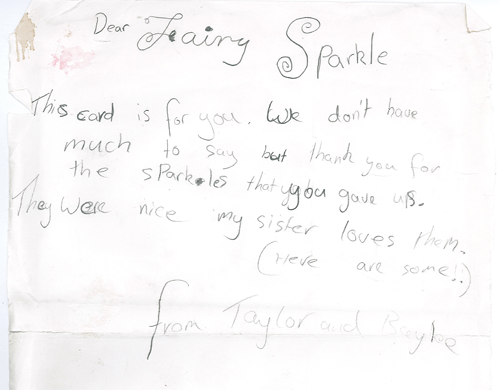 Dear Fairy Sparkle
This card is for you. We don't have
much to say but thank you for
the sparkles that you gave us.
They were nice my sister loves them.
(Here are some!!)
from Taylor and Baylee